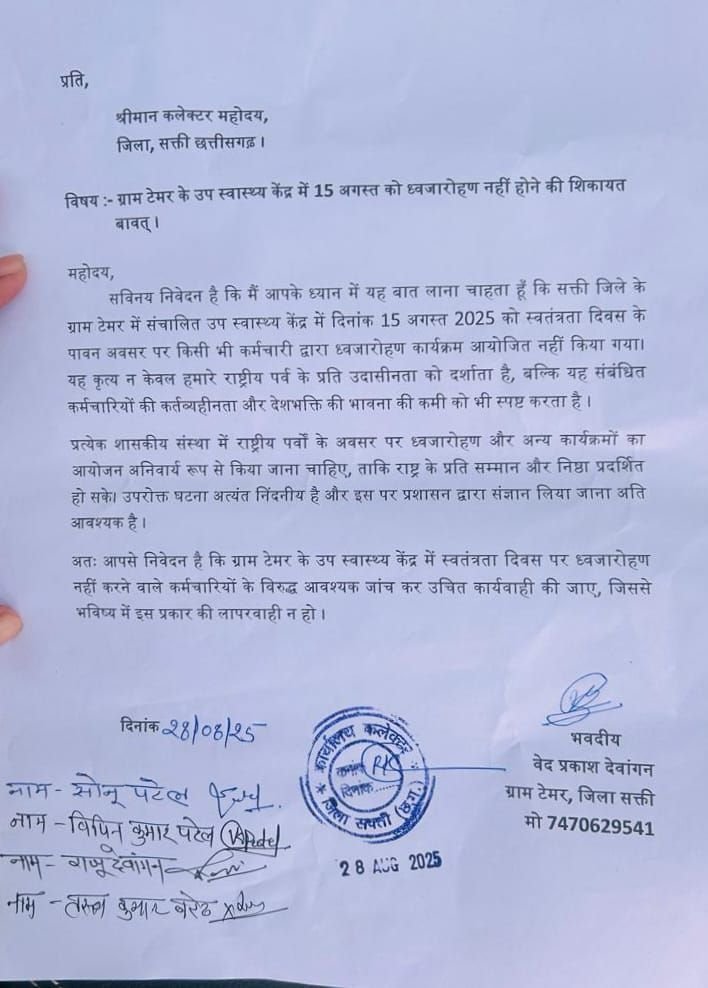 प्रति,
श्रीमान कलेक्टर महोदय,
जिला, सक्ती छत्तीसगढ़ ।
विषय :- ग्राम टेमर के उप स्वास्थ्य केंद्र में 15 अगस्त को ध्वजारोहण नहीं होने की शिकायत
बावत् ।
महोदय,
सविनय निवेदन है कि मैं आपके ध्यान में यह बात लाना चाहता हूँ कि सक्ती जिले के
ग्राम टेमर में संचालित उप स्वास्थ्य केंद्र में दिनांक 15 अगस्त 2025 को स्वतंत्रता दिवस के
पावन अवसर पर किसी भी कर्मचारी द्वारा ध्वजारोहण कार्यक्रम आयोजित नहीं किया गया।
यह कृत्य न केवल हमारे राष्ट्रीय पर्व के प्रति उदासीनता को दर्शाता है, बल्कि यह संबंधित
कर्मचारियों की कर्तव्यहीनता और देशभक्ति की भावना की कमी को भी स्पष्ट करता है ।
प्रत्येक शासकीय संस्था में राष्ट्रीय पर्वों के अवसर पर ध्वजारोहण और अन्य कार्यक्रमों का
आयोजन अनिवार्य रूप से किया जाना चाहिए, ताकि राष्ट्र के प्रति सम्मान और निष्ठा प्रदर्शित
हो सके। उपरोक्त घटना अत्यंत निंदनीय है और इस पर प्रशासन द्वारा संज्ञान लिया जाना अति
आवश्यक है ।
अतः आपसे निवेदन है कि ग्राम टेमर के उप स्वास्थ्य केंद्र में स्वतंत्रता दिवस पर ध्वजारोहण
नहीं करने वाले कर्मचारियों के विरुद्ध आवश्यक जांच कर उचित कार्यवाही की जाए, जिससे
भविष्य में इस प्रकार की लापरवाही न हो ।
दिनांक 28/08/25
भवदीय
वेद प्रकाश देवांगन
ग्राम टेमर, जिला सक्ती
मो 7470629541
कार्यालय कलेक्टर
दिनांक.....
जिला सक्ती (छ.ग.)
28 AUG 2025
नाम - सोनू पटेल
नाम - विपिन कुमार पटेल
नाम - राजू देवांगन
नाम - कुमार